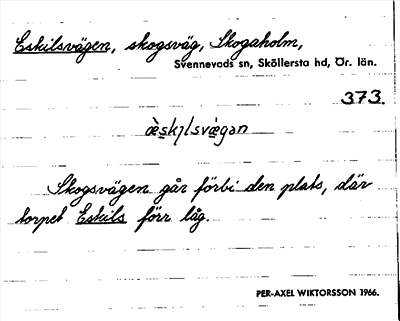 Eskilsvägen, skogsväg, Skogaholm,
Svennevads sn, Sköllersta hd, Ör. län.
373.
Skogsvägen går förbi den plats, där
torpet Eskils förr låg.
PER-AXEL WIKTORSSON 1966.